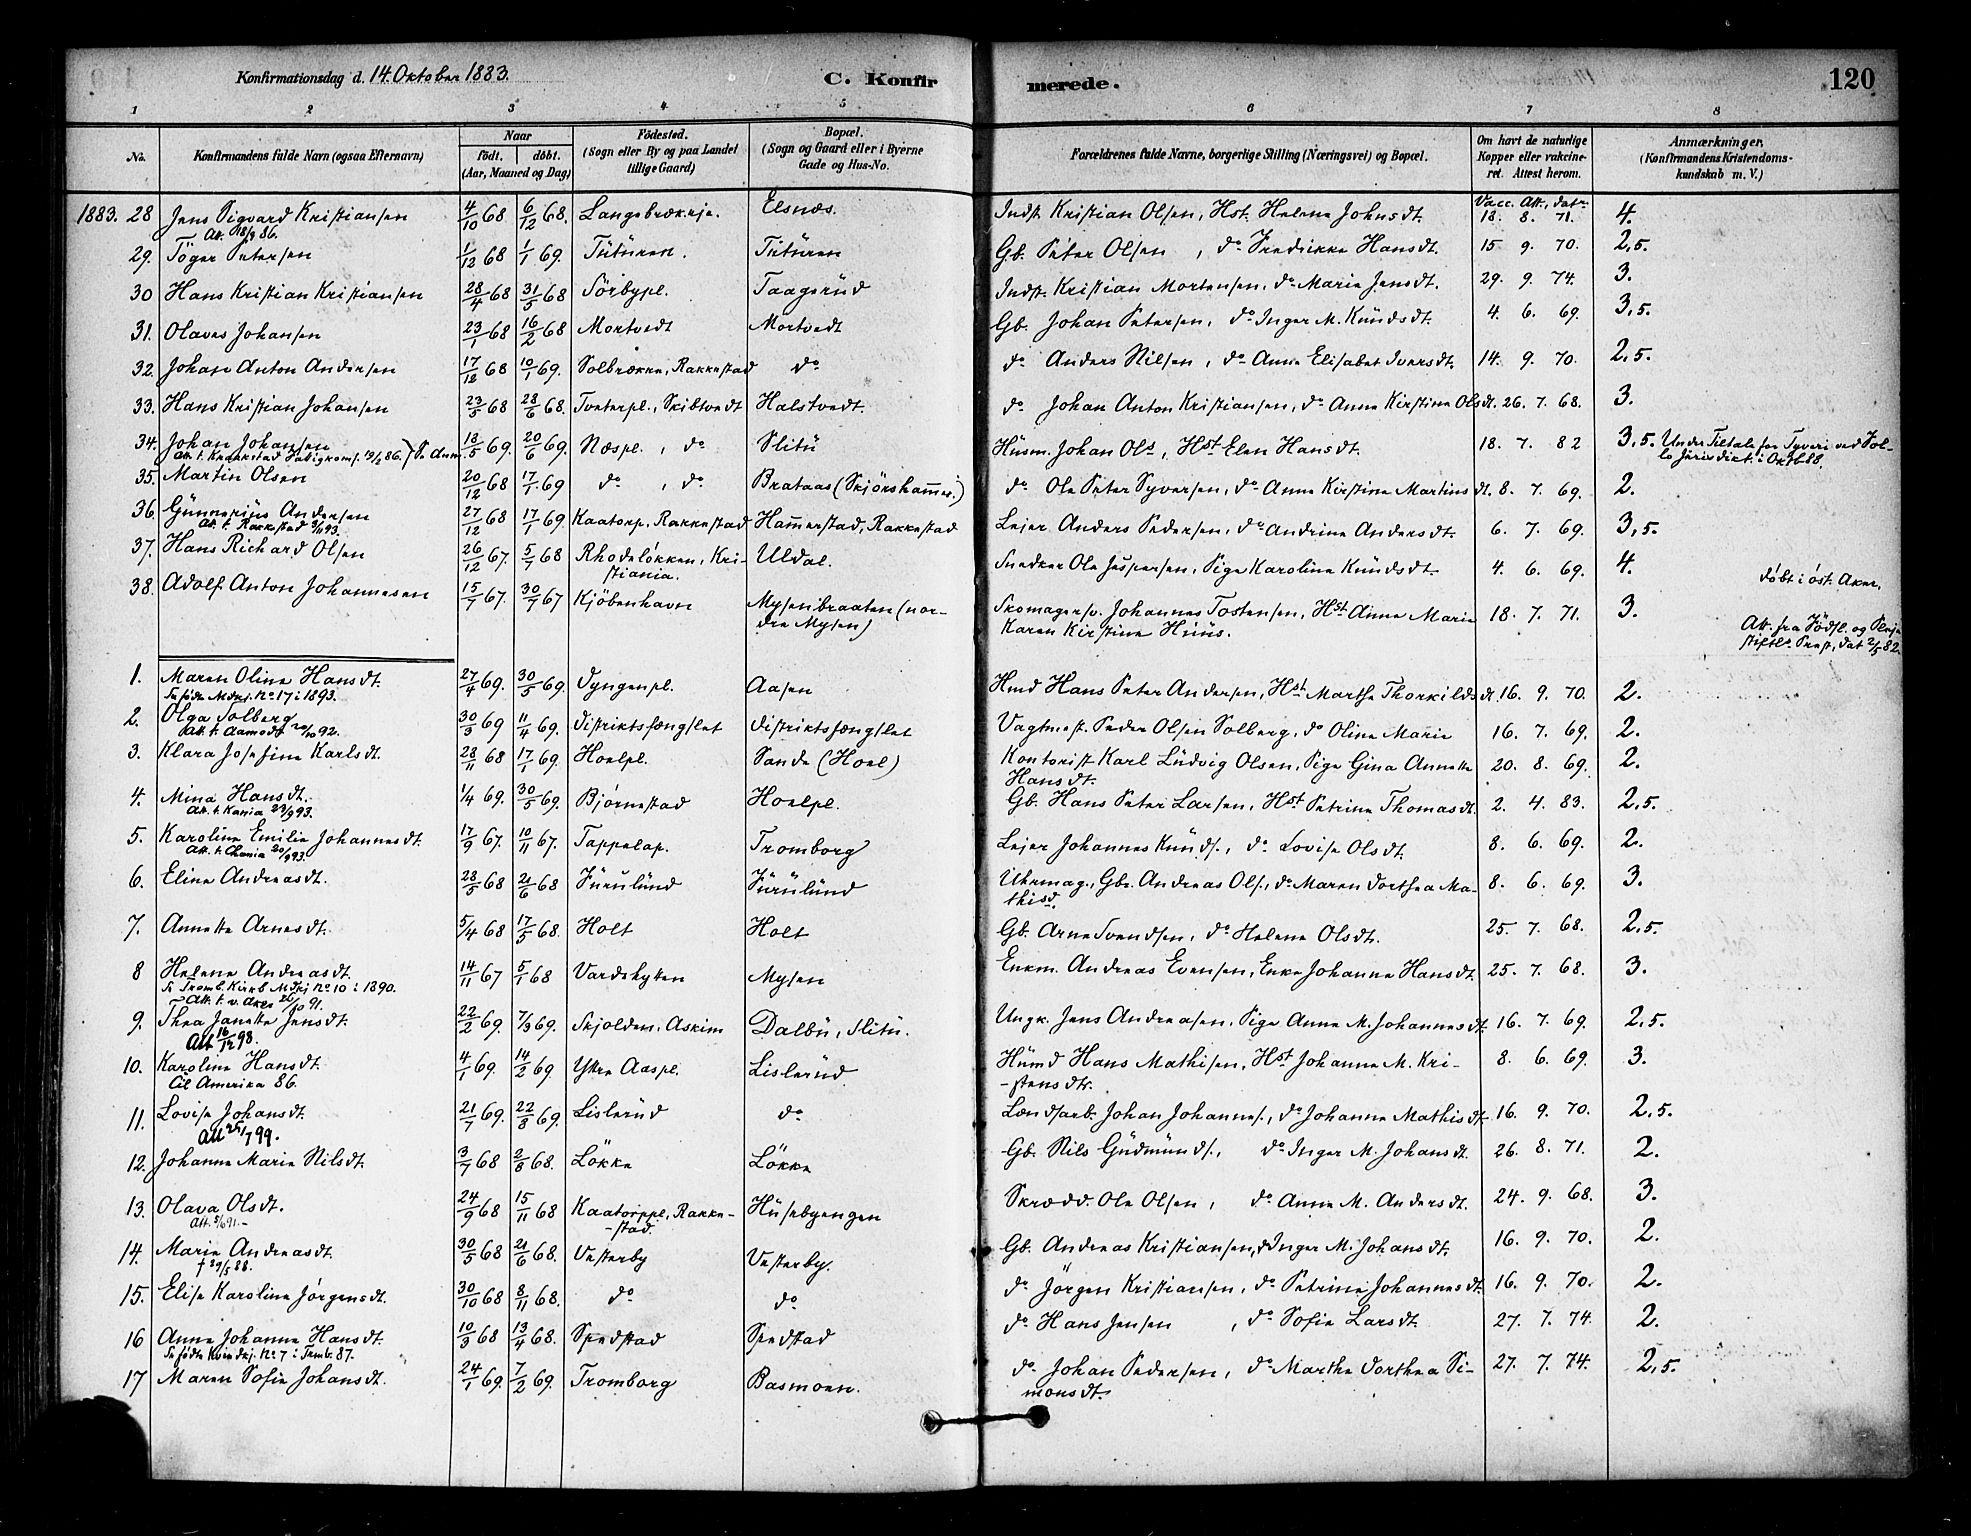 Konfirmationsdag d. 14. Oktober 1883.
C. Konfirmerede.
120
1 2 3 4 5 6 7 8
No. Konfirmandens fulde Navn (ogsaa Efternavn) Naar födt. döbt. (Aar, Maaned og Dag) Födested. (Sogn eller By og paa Landet tillige Gaard) Bopæl. (Sogn og Gaard eller i Byerne Gade og Hus-No. Forældrenes fulde Navne, borgerlige Stilling (Næringsvei) og Bopæl. Om havt de naturlige Kopper eller vakcineret. Attest herom. Anmærkninger. (Konfirmandens Kristendomskundskab m. V.)
1883. 28 Jens Sigvard Kristiansen 4/10 68 6/12 68. Langebrækeje. Elsnæs. Indst. Kristian Olsen, Hst. Helene Johnsdt. Vacc. Att., dat. 18. 8. 71. 4.
Att. 18/9 86.
29. Töger Petersen 1/12 68 1/1 69. Tütüren. Tütüren Gb. Peter Olsen, do Fredrikke Hansdt. 15 9. 70. 2,5.
30 Hans Kristian Kristiansen 28/4 68 31/5 68 Sörbypl. Taagerüd Indst. Kristian Mortensen, do Marie Jensdt. 29. 9. 74. 3.
31. Olaves Johansen 23/1 68 16/2 68 Mortvedt Mortvedt Gb. Johan Petersen, do Inger M. Knüdsdt. 4. 6. 69. 3,5.
32. Johan Anton Andersen 17/12 68 10/1 69. Solbrække, Rakkestad do do Anders Nilsen, do Anne Elisabet Iversdt. 14. 9. 70. 2,5.
33. Hans Kristian Johansen 23/5 68 28/6 68. Tveterpl., Skibtvedt Halstvedt. do Johan Anton Kristiansen, do Anne Kirstine Olsdt. 26. 7. 68. 3.
34. Johan Johansen 18/5 69. 20/6 69. Næspl., do Slitü Hüsm. Johan Ols., Hst Elen Hansdt. 18. 7. 82 3,5. Under Tiltale for Tyveri ved Sol-
lo Jurisdikt. i Oktb 88.
35. Martin Olsen 20/12 68 17/1 69 do, do Brataas (Skjönhamer.) do Ole Peter Syversen, do Anne Kirstine Martinsdt. 8. 7. 69. 2.
36. Günnerius Andersen 27/12 68 17/1 69 Kaatorp, Rakkestad Hamerstad, Rakkestad Lejer Anders Pedersen, do Andrine Andersdt. 6. 7. 69. 3,5.
Att. t. Rakkestad 9/11 93.
37. Hans Richard Olsen 26/12 67. 5/7 68 Rhodelökken, Kri- Uldal. Snedker Ole Jespersen, Pige Karoline Knüdsdt. 4. 6. 69. 4. döbt i öst. Aker.
stiania.
38. Adolf Anton Johannesen 15/7 67. 30/7 67 Kjöbenhavn Mysenbraaten (nor- Skomagersv. Johannes Tostensen, Hst Anne Marie 18. 7. 71. 3.
dre Mysen) Karen Kirstine Hüüs. Att. fra Födsl. og Plejestiftls Prest, dat 2/5 82.
1. Maren Oline Hansdt. 27/4 69. 30/5 69. Dyngenpl. Aasen Hmd Hans Peter Andersen, Hst Marthe Thorkildsdt. 16. 9. 70. 2.
Se fødte Mdkj. No 17 i 1893.
2. Olga Solberg 30/3 69 11/4 69. Distriktsfængslet Distriktsfængslet Vagtmest. Peder Olsen Solberg, do Oline Marie 16. 7. 69. 2.
Att. t. Aamodt 20/10 92.
3. Klara Josefine Karlsdt. 28/11 68 17/1 69. Hoelpl. Sande (Hoel) Kontorist Karl Lüdvig Olsen, Pige Gina Annette 20. 8. 69. 2.
Hansdt.
4. Mina Hansdt. 1/4 69. 30/5 69. Bjørnestad Hoelpl. Gb. Hans Peter Larsen, Hst Petrine Thomasdt. 2. 4. 83. 2,5.
Att. t. Kania 23/9 93.
5. Karoline Emilie Johannesdt. 17/9 67. 10/11 67. Tappelap. Tromborg Lejer Johannes Knüds., do Lovise Olsdt. 8. 6. 69. 2.
Att. t. Chania 20/9 93.
6. Eline Andreasdt. 28/5 68 21/6 68 Fürülünd Fürülünd Uhrmag., Gbr. Andreas Ols., do Maren Dorthea Ma- 8. 6. 69. 3.
thisd.
7. Annette Arnesdt. 5/4 68 17/5 68. Holt Holt Gb. Arne Svendsen, do Helene Olsdt. 25. 7. 68. 2,5.
8 Helene Andreasdt. 14/11 67 5/1 68 Vardehytten Mysen Enkm. Andreas Evensen, Enke Johanne Hansdt. 25. 7. 68. 3.
Se Tromb. Kirkb Mdkj No 10 i 1890.
Att. t. v. Aker 26/10 91.
9. Thea Janette Jensdt. 22/2 69. 7/3 69. Skjolden, Askim Dalbü, Slitü. Ungk. Jens Andreasen, Pige Anne M. Johannesdt. 16. 7. 69. 2,5.
Att 16/12 98.
10. Karoline Hansdt. 4/1 69. 14/2 69 Ytre Aaspl. Lislerüd. Hümd Hans Mathisen, Hst Johanne M. Kri- 8. 6. 69. 3.
Til Amerika 86. -stensdtr.
11. Lovise Johansdt. 21/7 69. 22/8 69. Lislerüd do Landsarb. Johan Johannes., do Johanne Mathisdt. 16. 9. 70. 2,5.
Att 25/7 99.
12. Johanne Marie Nilsdt. 3/7 68 2/8 68. Lökke Lökke Gb. Nils Güdmünds., do Inger M. Johansdt. 26. 8. 71. 2.
13. Olava Olsdt. 24/9 68 15/11 68 Kaatorppl., Rakke- Hüsebyengen Skrædd. Ole Olsen, do Anne M. Andersdt. 24. 9. 68. 3.
Att. 5/6 91.- -stad.
14. Marie Andreasdt. 30/5 68 21/6 68. Vesterby Vesterby. Gb. Andreas Kristiansen, do Inger M. Johansdt. 16. 9. 70. 2.
† 29/5 88.
15. Elise Karoline Jörgensdt. 30/10 68 8/11 68. do do do Jörgen Kristiansen, do Petrine Johannesdt. 16. 9. 70. 2.
16 Anne Johanne Hansdt. 10/3 68 13/4 68. Spedstad Spedstad do Hans Jensen, do Sofie Larsdt. 27. 7. 74. 2.
Se fødte Kvindkj. No 7 i Tromb. 87.
17 Maren Sofie Johansdt. 24/1 69. 7/2 69. Tromborg Basmoen. do Johan Pedersen, do Marthe Dorthea Si- 27. 7. 74. 2,5.
monsdt.